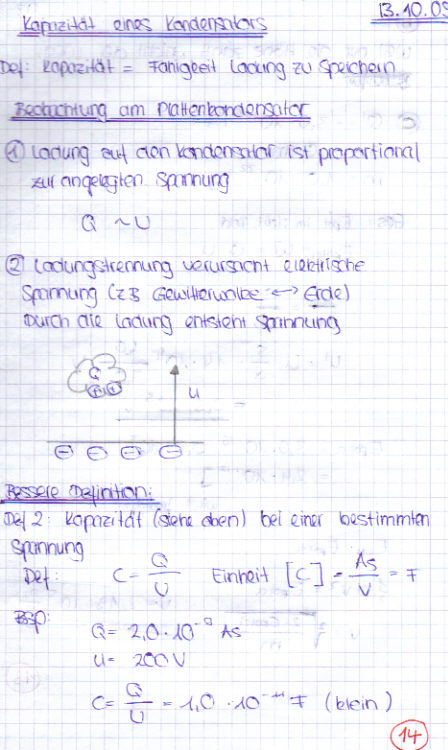 Kapazität eines Kondensators
13.10.09
Def: Kapazität = Fähigkeit Ladung zu speichern
Beobachtung am Plattenkondensator
① Ladung auf den Kondensator ist proportional
zur angelegten Spannung
Q ~ U
② Ladungstrennung verursacht elektrische
Spannung (zB Gewitterwolke <-> Erde)
Durch die Ladung entsteht Spannung
Q
⊕ ⊕
U
⊖ ⊖ ⊖ ⊖
Bessere Definition:
Def 2: Kapazität (siehe oben) bei einer bestimmten
Spannung
Def: C = Q/U Einheit [C] = As/V = F
Bsp:
Q = 2,0 · 10⁻⁹ As
U = 200 V
C = Q/U = 1,0 · 10⁻¹¹ F (klein)
14